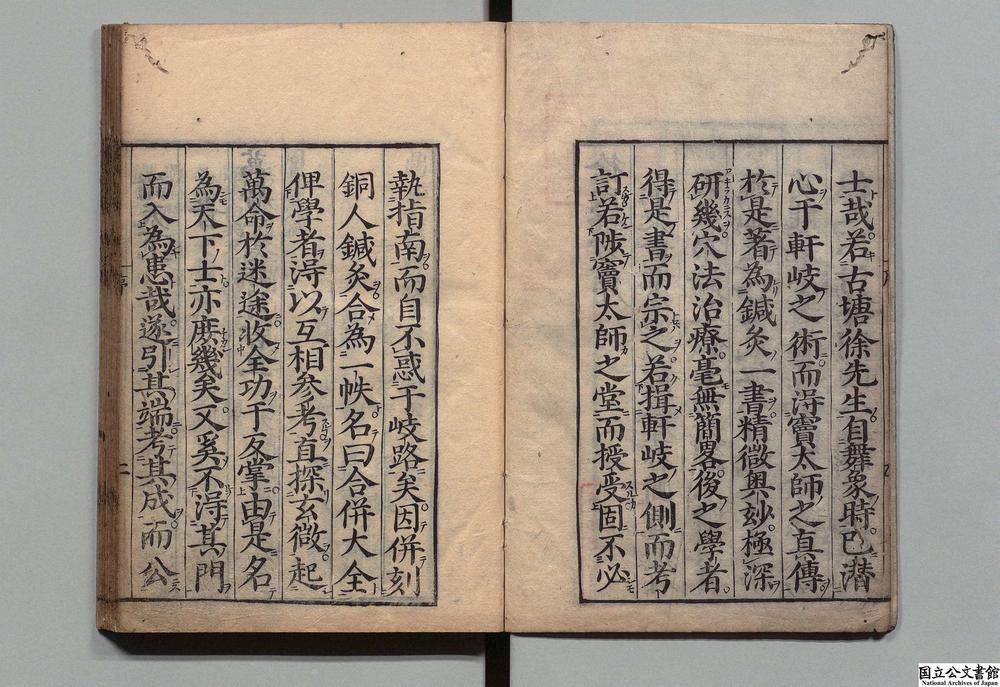 士哉若古塘徐先生自舞象時已潜
心于軒岐之術而得竇太師之真傳
於是著為鍼灸一書精微奧妙極深
研幾穴法治療毫無簡畧後之學者
得是書而宗之若揖軒岐之側而考
訂若陟竇太師之堂而授受固不必
執指南而自不惑于岐路矣因併刻
銅人鍼灸合為一帙名曰合併大全
俾學者得以互相參考直探玄微起
萬命於迷途收全功于反掌由是名
為天下士亦庶幾矣又奚不得其門
而入為患哉遂引其端考其成而公
序
二
国立公文書館
National Archives of Japan